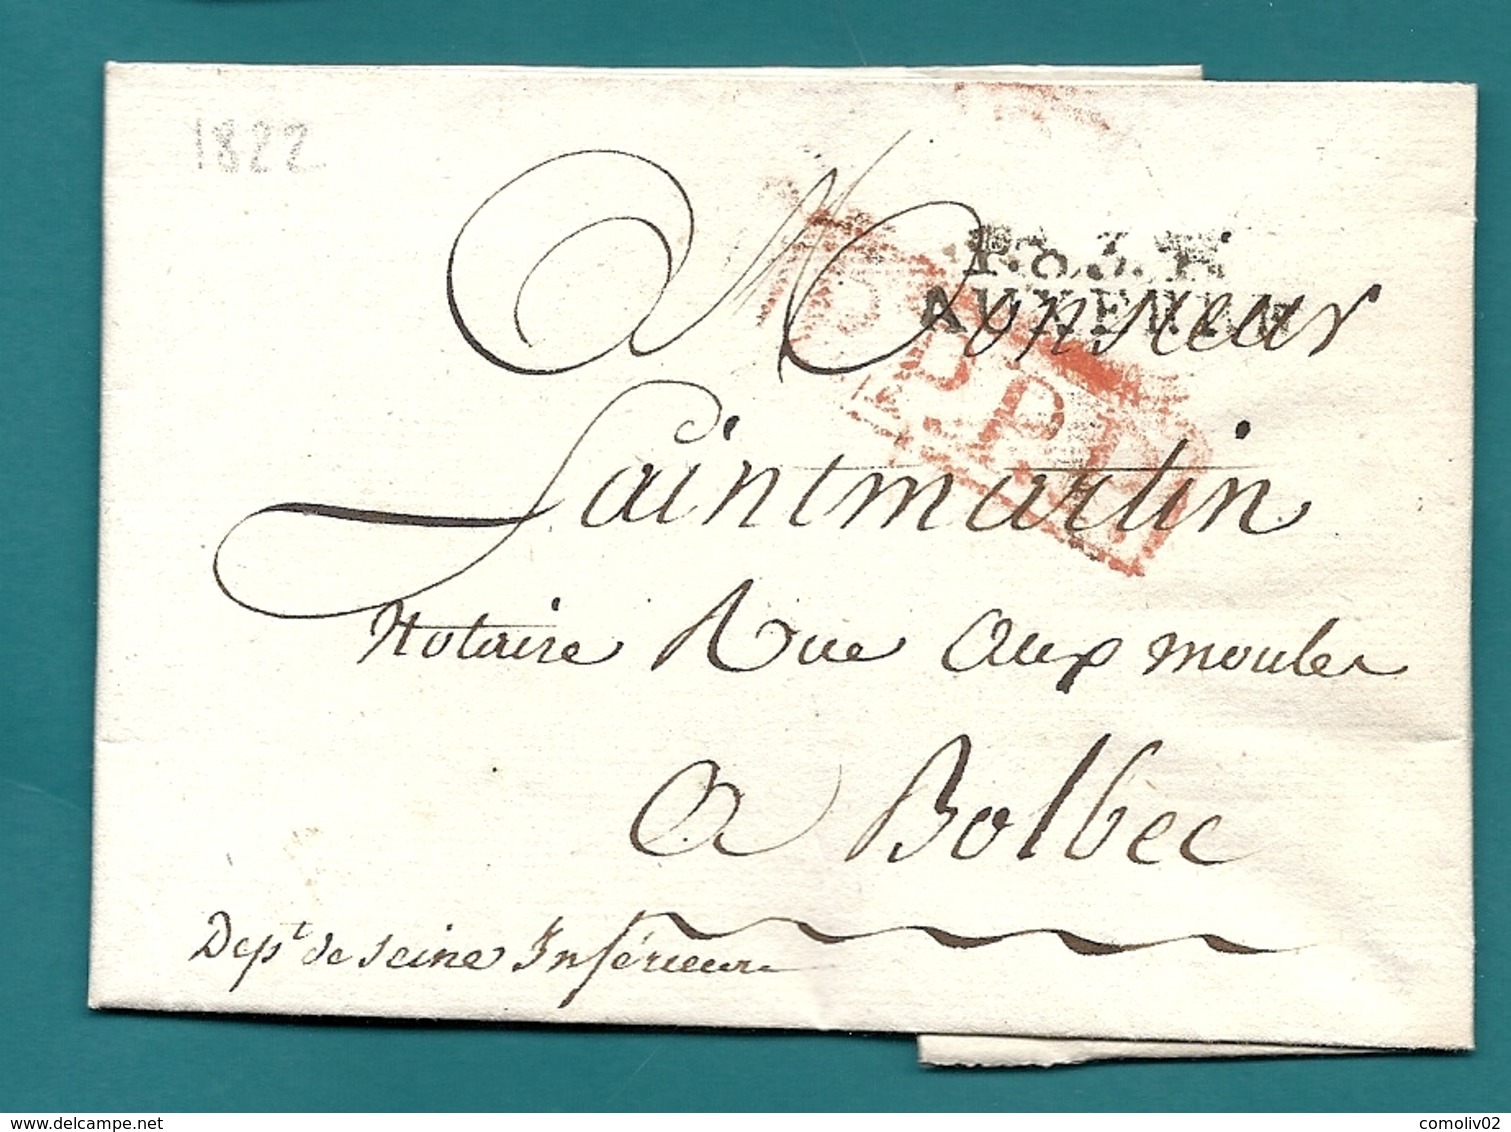 1822
P.83.P.
AUXERRE
Monsieur
P.P.P.P.
Saintmartin
Notaire Rue aux moules
a Bolbec
Dept de seine Inférieure
delcampe.net
comoliv02